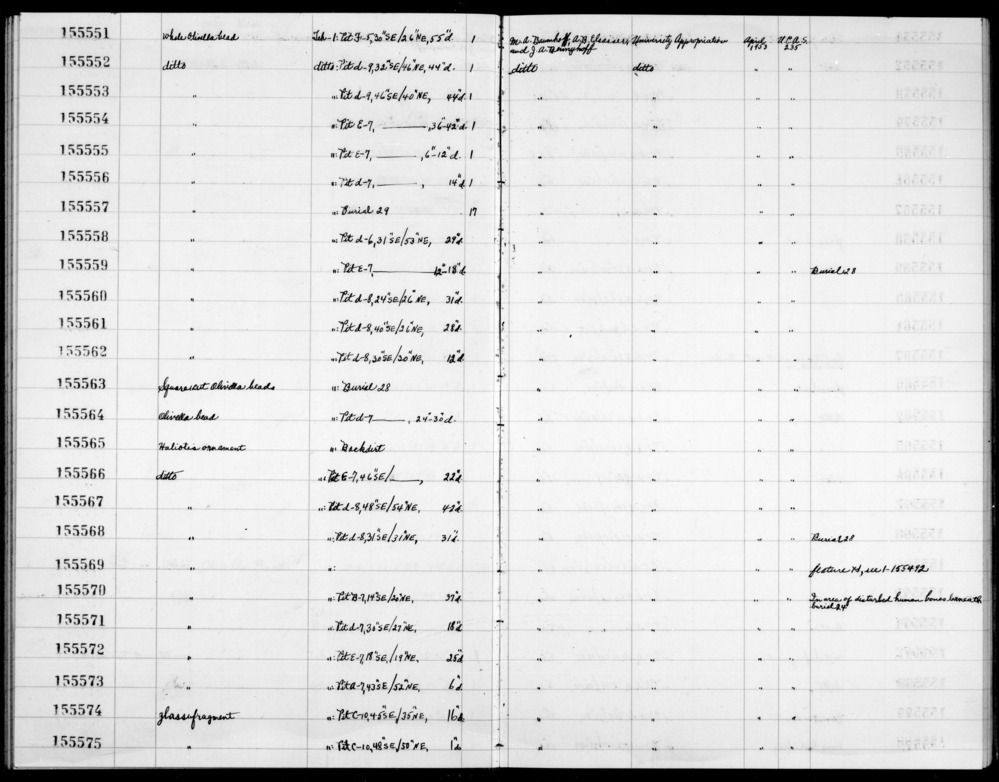 155551 Whole Olivella bead Teh-1: Pit F-5, 30"SE/26"NE, 55"d. 1 M.A. Baumhoff, A.B. Elsasser, University Appropriation April, U.C.A.S.
and J.A. Bennyhoff 1953 235
155552 ditto ditto: Pit d-9, 32"SE/46"NE, 44"d. 1 ditto ditto " "
155553 " ": Pit d-9, 46"SE/40"NE, 44"d. 1 " " " "
155554 " ": Pit E-7, ———, 36-42"d. 1 " " " "
155555 " ": Pit E-7, ———, 6"-12"d. 1 " " " "
155556 " ": Pit d-7, ———, 14"d. 1 " " " "
155557 " ": Burial 29 17 " " " "
155558 " ": Pit d-6, 31"SE/53"NE, 29"d. " " " "
155559 " ": Pit E-7, ——— 12"-18"d. " " " " Burial 28
155560 " ": Pit d-8, 24"SE/26"NE, 31"d. " " " "
155561 " ": Pit d-8, 40"SE/26"NE, 28"d. " " " "
155562 " ": Pit d-8, 30"SE/20"NE, 12"d. " " " "
155563 Square cut Olivella beads ": Burial 28 " " " "
155564 Olivella bead ": Pit d-7 ———, 24"-30"d. " " " "
155565 Haliotis ornament ": Backdirt " " " "
155566 ditto ": Pit E-7, 46"SE/———, 22"d. " " " "
155567 " ": Pit d-8, 48"SE/54"NE, 42"d. " " " "
155568 " ": Pit d-8, 31"SE/31"NE, 31"d. " " " " Burial 28
155569 " ": " " " " feature 4d, see 1-155492
155570 " ": Pit B-7, 14"SE/20"NE, 37"d. " " " " In area of disturbed human bones beneath
burial 24
155571 " ": Pit d-7, 30"SE/27"NE, 18"d. " " " "
155572 " ": Pit E-7, 18"SE/19"NE, 25"d. " " " "
155573 " ": Pit A-7, 43"SE/52"NE, 6"d. " " " "
155574 glass fragment ": Pit C-10, 45"SE/35"NE, 16"d. " " " "
155575 " ": Pit C-10, 48"SE/50"NE, 1"d. " " " "